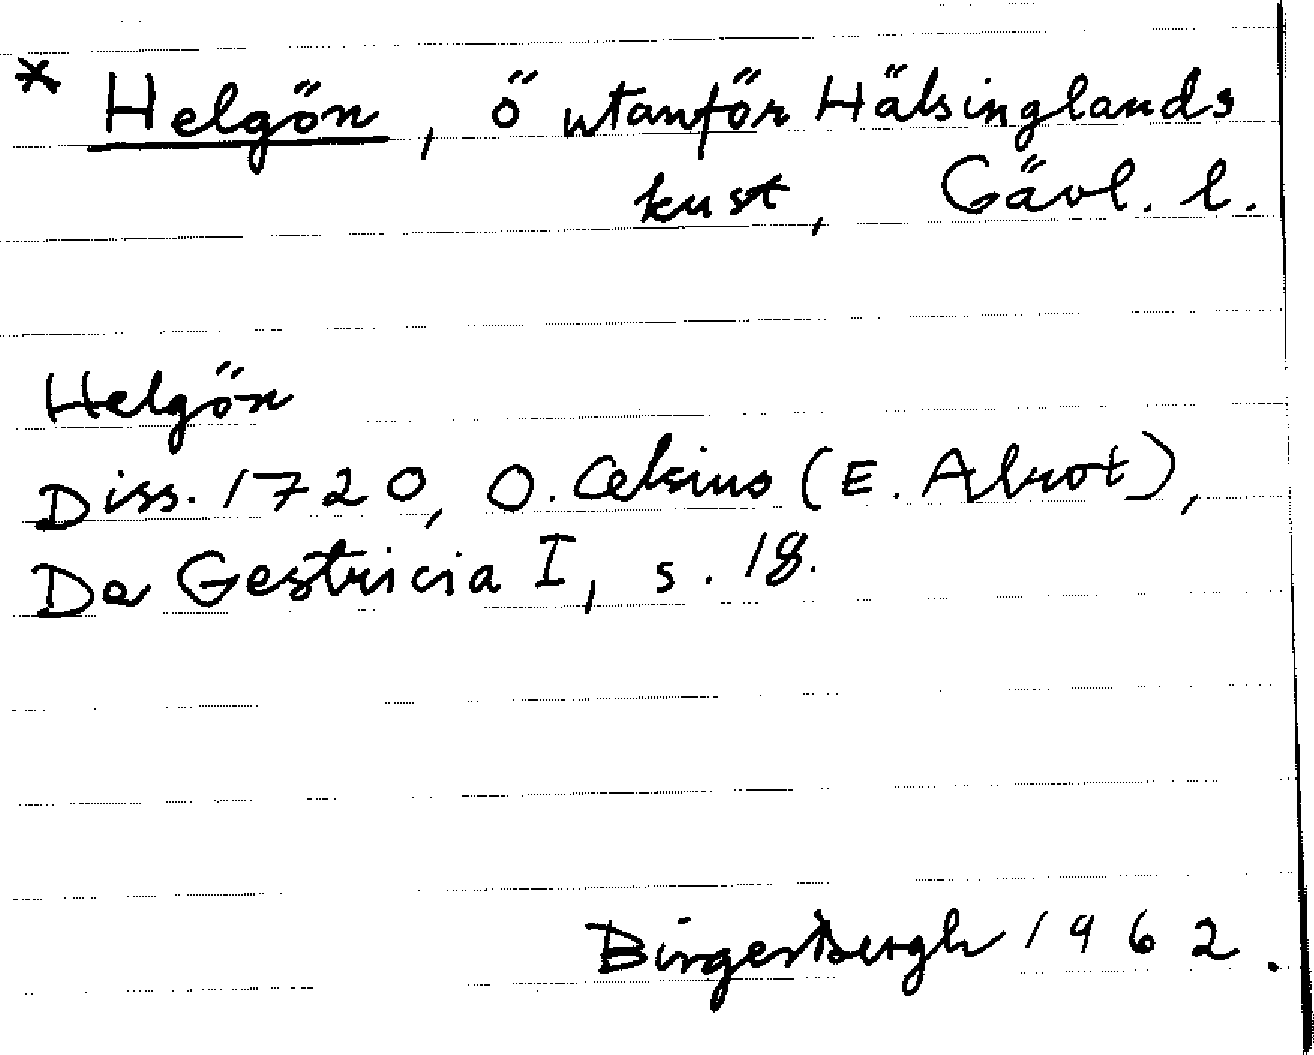 * Helgön, ö utanför Hälsinglands
kust, Gävl. l.
Helgön
Diss. 1720, O. Celsius (E. Alrot),
De Gestricia I, s. 18.
Birger Bergh 1962.